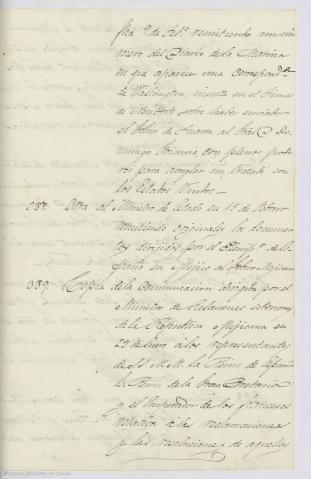 fha 9 de Feb.º remitiendo un nú
mero del Diario de la Marina
en que aparece una correspond.ª
de Washington, inserta en el Times
de New York sobre haber enviado
el Gobno de Juarez al Gral D. Do-
mingo con plenos pode
res para arreglar un tratado con
los Estados Unidos.-
387. Otra al Ministro de Estado en 15 de Febrero
remitiendo originales los documen
tos dirigidos por el de Es
paña en Mejico al Gobno Mejicano
389. Copia de la comunicacion dirigida por el
Ministro de Relaciones esteriores
de la Republica Mejicana en
29 de Enero á los representantes
de S.S. M.M. la Reina de España
la Reina de la Gran Bretaña
y el Emperador de los franceses
relativa á las reclamaciones
y las resoluciones de aquellos